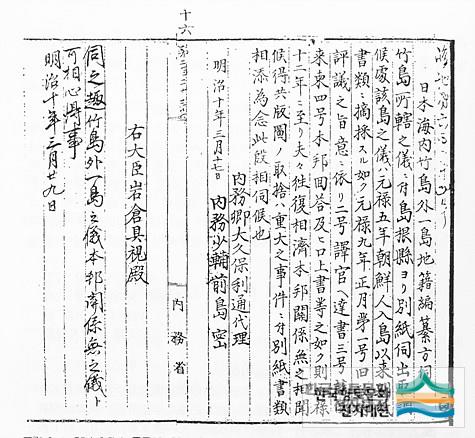 日本海内竹島外一島地籍編纂方伺
竹島所轄之儀ニ付島根縣ヨリ別紙伺出
候處該島之儀ハ元禄五年朝鮮人入島以来
書類ニ摘採スル如ク元禄九年正月第一号旧
評議之旨意ニ依リ二号譯官ヘ達書三号
来柬四号本邦回答及ヒ口上書等之如ク則元禄
十二年ニ至リ夫々往復相濟本邦関係無之相聞
候得共版圖ノ取捨ハ重大之事件ニ付別紙書類
相添為念此段相伺候也
内務卿大久保利通代理
明治十年三月十七日 内務少輔前島密
内務省
右大臣岩倉具視殿
伺之趣竹島外一島之儀本邦関係無之儀ト
可相心得事
明治十年三月廿九日
十六
한국향토문화
전자대전